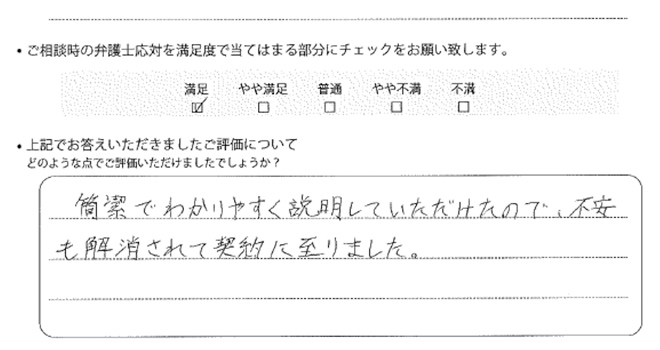 ・ご相談時の弁護士応対を満足度で当てはまる部分にチェックをお願い致します。
満足 やや満足 普通 やや不満 不満
☑ □ □ □ □
・上記でお答えいただきましたご評価について
どのような点でご評価いただけましたでしょうか？
簡潔でわかりやすく説明していただけたので、不安
も解消されて契約に至りました。